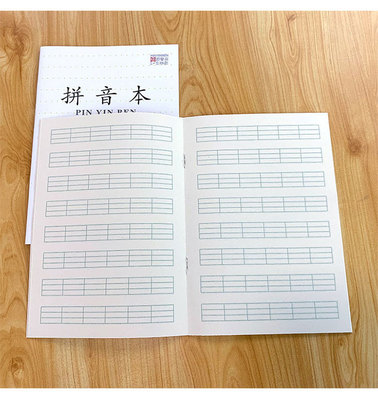 拼音本
PIN YIN BEN